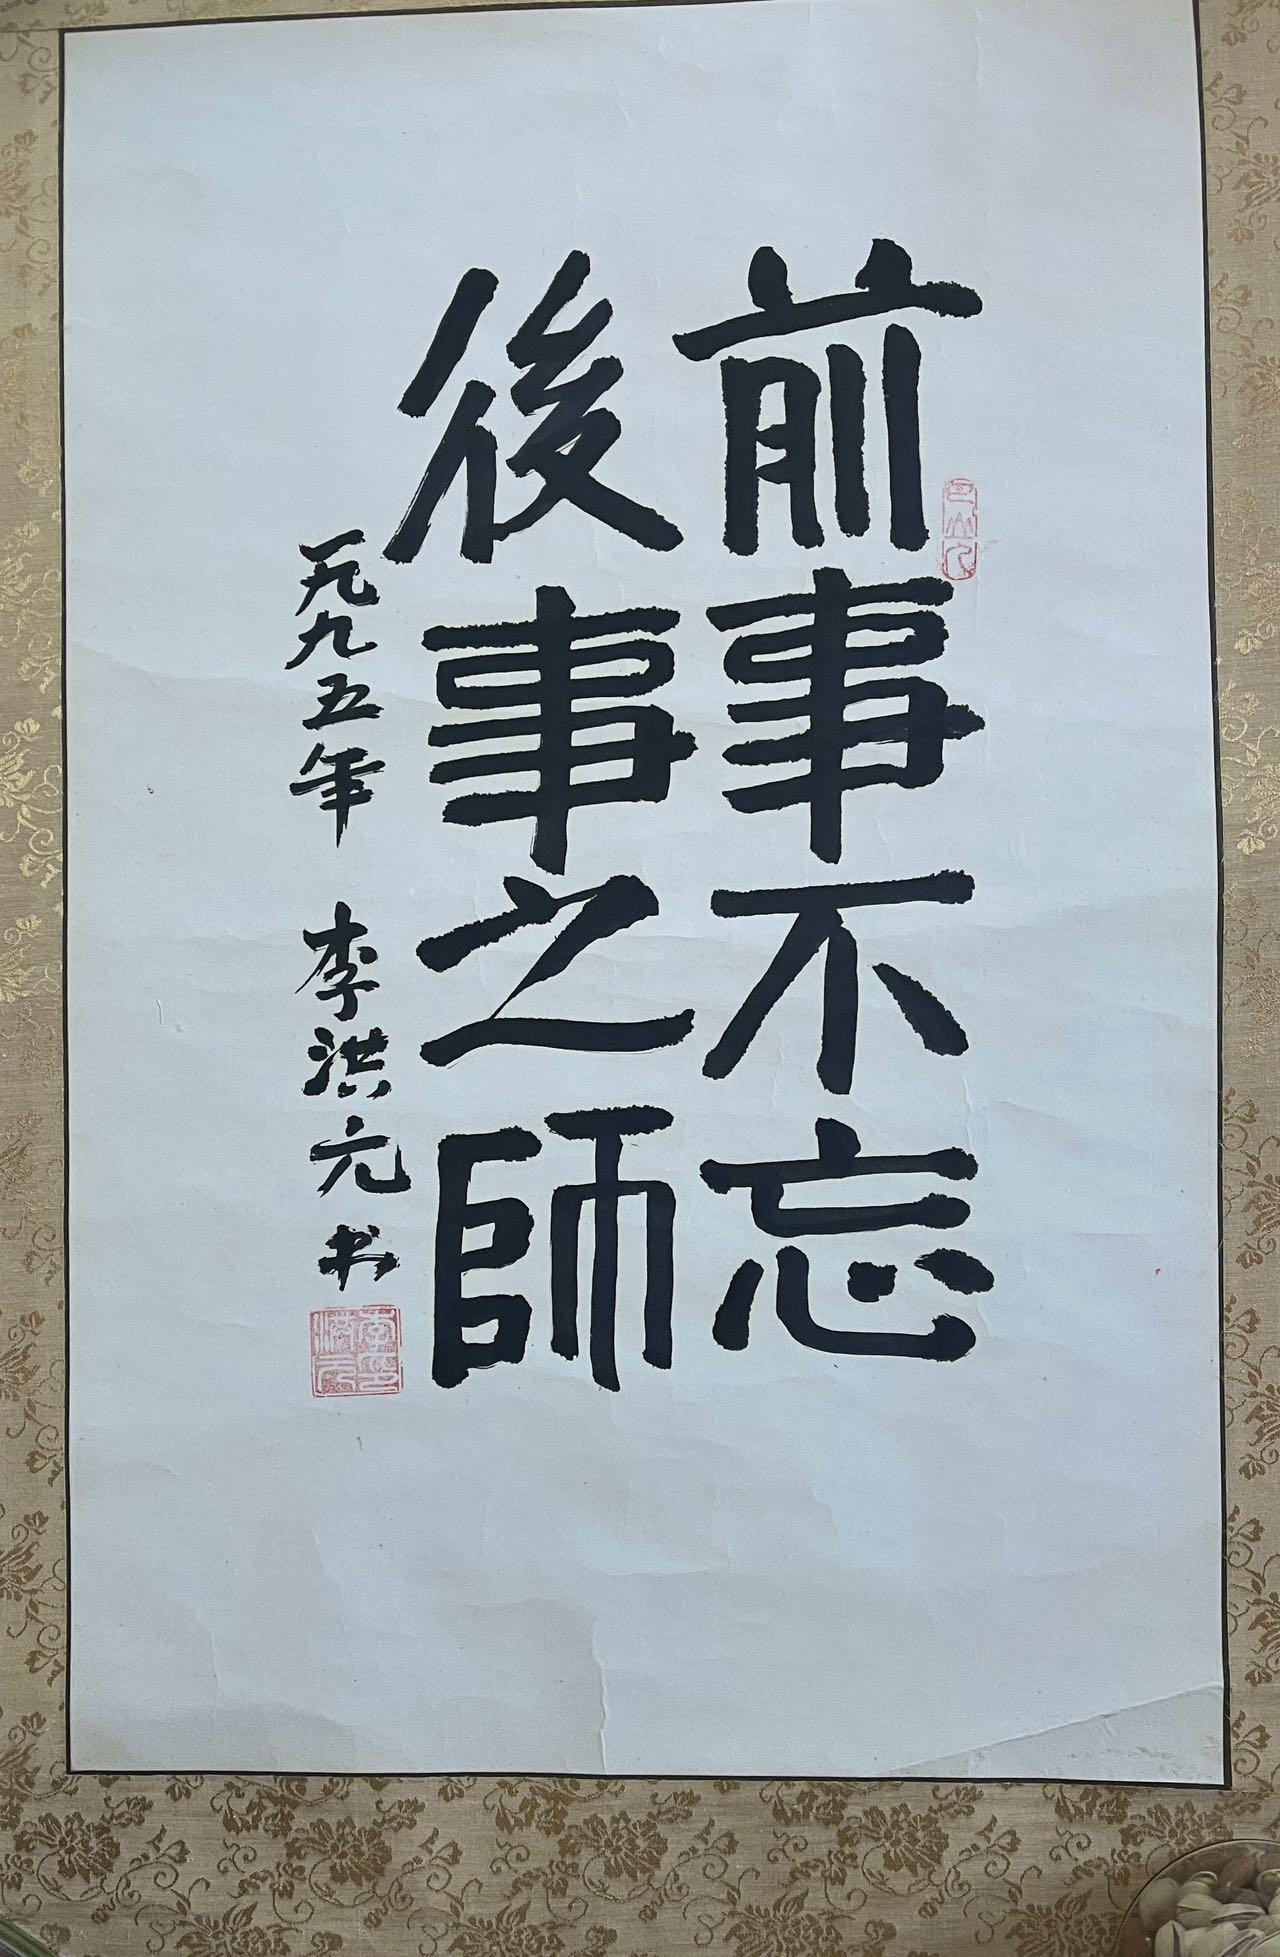 前事不忘
後事之師
一九九五年 李洪元书